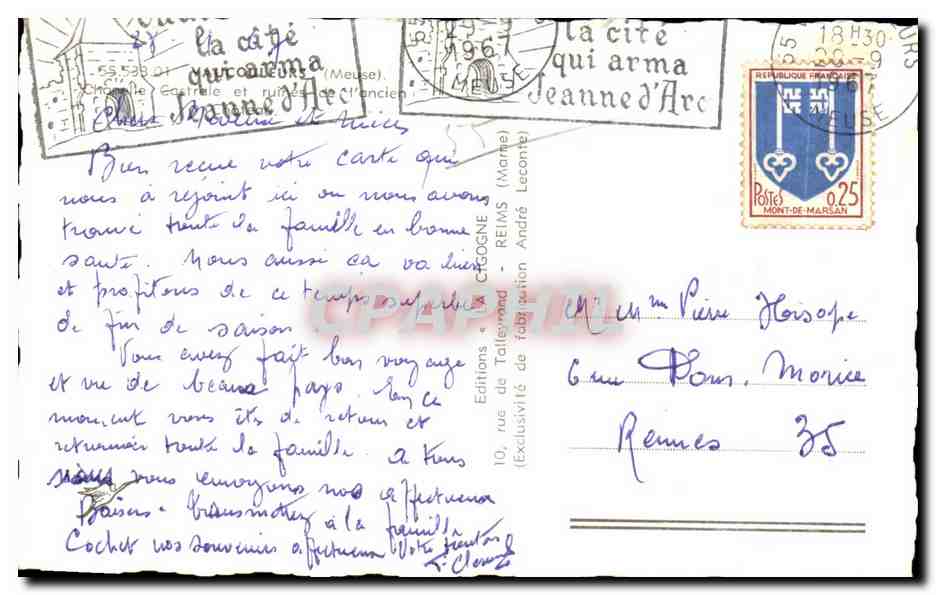 27
la cité
qui arma
Jeanne d'Arc
1967
MEUSE
la cité
qui arma
Jeanne d'Arc
55
18H30
29-9
1967
MEUSE
REPUBLIQUE FRANÇAISE
POSTES 0,25
MONT-DE-MARSAN
55.533.01 VAUCOULEURS (Meuse).
Chapelle Castrale et ruines de l'ancien
Chers Neveux et Nièces
55
Bien reçue votre carte qui
nous à rejoint ici ou nous avons
trouvé toute la famille en bonne
santé. Nous aussi ça va bien
et profitons de ce temps superbe
de fin de saison
Vous avez fait bon voyage
et vu de beaux pays. En ce
moment vous êtes de retour et
retrouver toute la famille. A tous
nous vous envoyons nos affectueux
Baisers. transmettez à la famille
Cochet nos souvenirs affectueux Votre
Editions "LA CIGOGNE"
10, rue de Talleyrand - REIMS (Marne)
(Exclusivité de fabrication André Leconte)
CPAPHIL
Mr Mme Pierre
6 rue Morice
Rennes 35